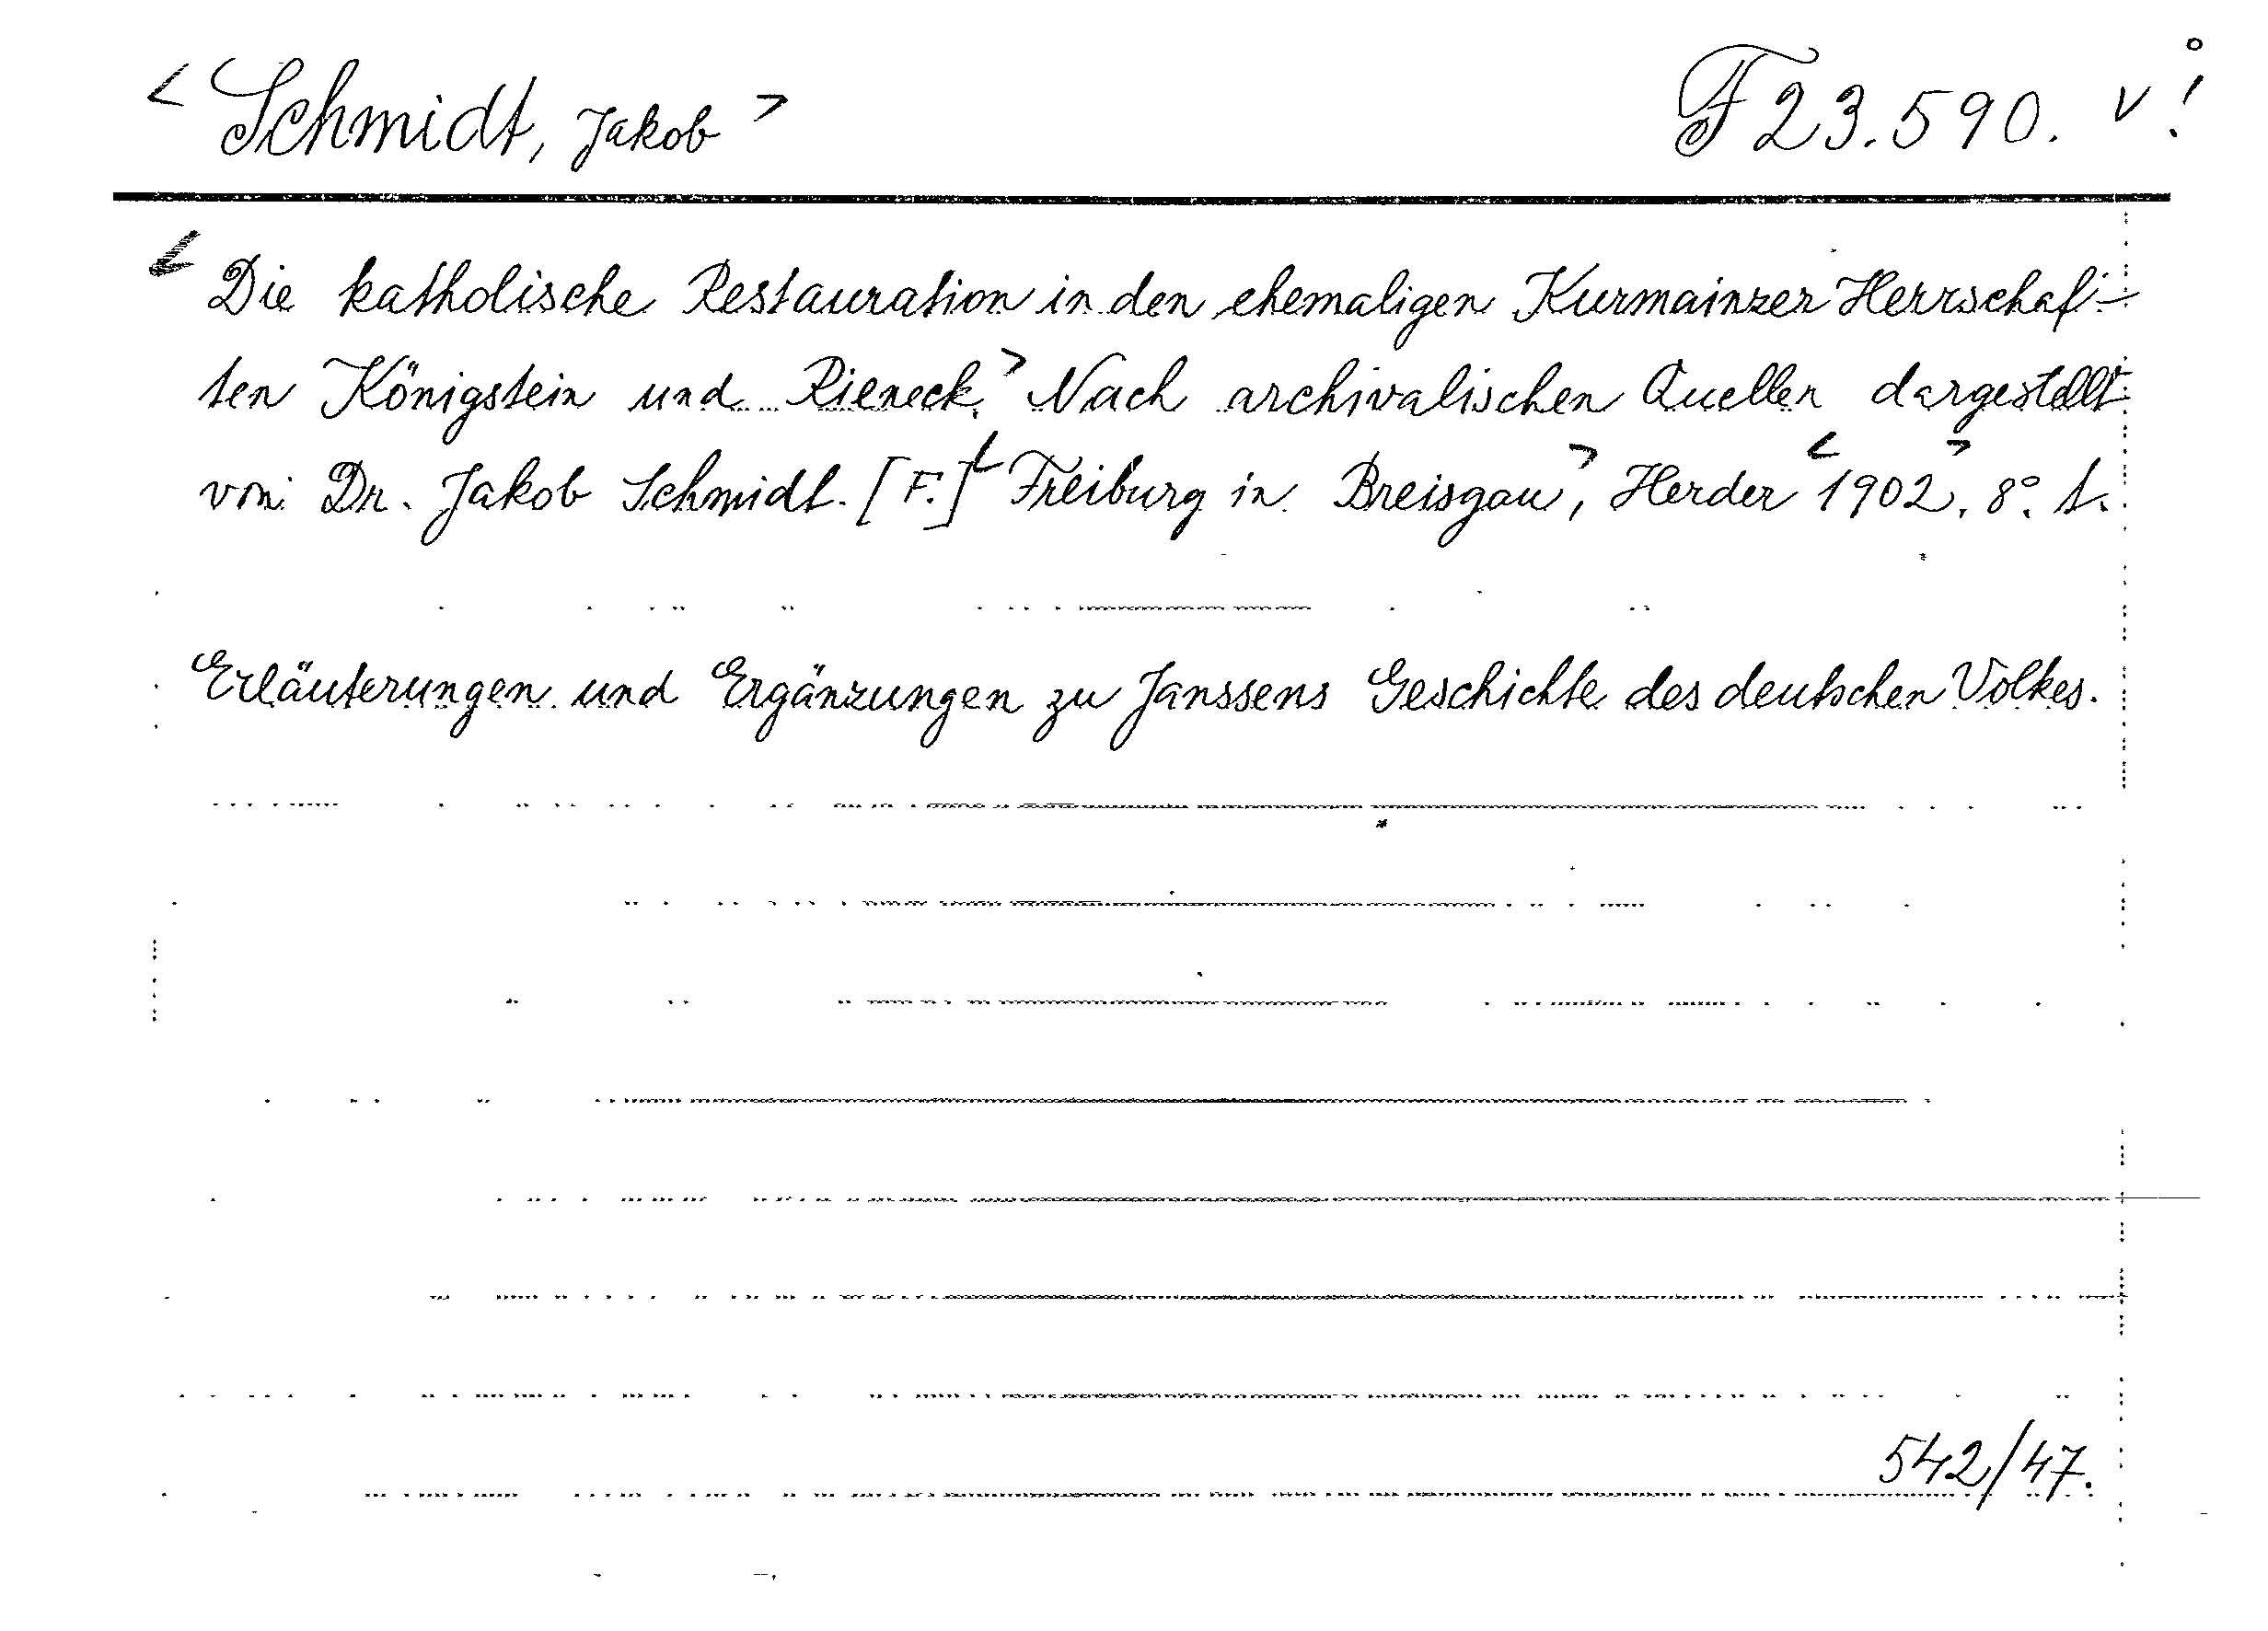 < Schmidt, Jakob > F 23.590. v !
< Die katholische Restauration in den ehemaligen Kurmainzer Herrschaf-
ten Königstein und Rieneck.> Nach archivalischen Quellen dargestellt
von Dr. Jakob Schmidt. [F.] < Freiburg in Breisgau >, Herder < 1902 >. 8°. t.
Erläuterungen und Ergänzungen zu Janssens Geschichte des deutschen Volkes.
542/47.